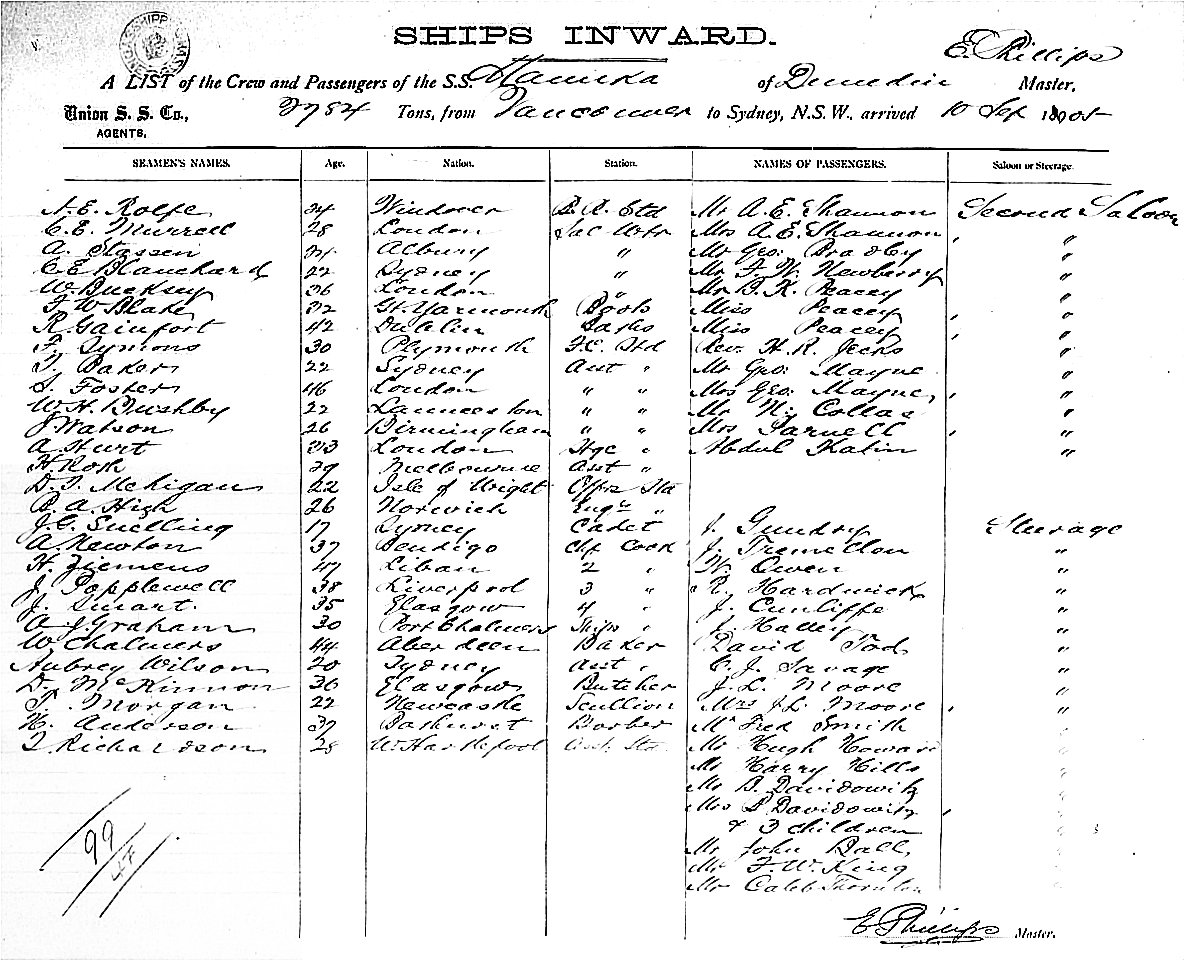 SHIPS INWARD.
E. Phillips
A LIST of the Crew and Passengers of the S.S. Manuka of Dunedin Master,
Union S. S. Co., 2784 Tons, from Vancouver to Sydney, N.S.W., arrived 10 Sep 1905
AGENTS.
SEAMEN'S NAMES. Age. Nation. Station. NAMES OF PASSENGERS. Saloon or Steerage.
A. E. Rolfe 24 Windsor B. R. Std Mr A. E. Shannon Second Saloon
C. E. Murrell 28 London Sal Wtr Mrs A E. Shannon "
A. Stassen 24 Albury " Mr Geo. Bradby "
C E Blanchard 22 Sydney " Mr F. W. Newberry "
W. Bucksey 36 London " Mr B. K. Peacey "
F. W Blake 32 Gt. Yarmouth Pools Miss Peacey "
R. Gainfort 42 Dublin Miss Peacey "
F. Symons 30 Plymouth F.C. Std Rev. H. R. Jecks "
T. Baker 22 Sydney Asst " Mr Geo. Mayne "
S. Foster 46 London " " Mrs Geo. Mayne "
W. H. Bushby 22 Launceston " " Mr Hy Collas "
J. Watson 26 Birmingham " " Mrs Parnell "
A. Hurt 33 London " Abdul Kalin "
H. Rosk 29 Melbourne Asst "
D. J. Mehigan 22 Isle of Wright Offrs Std
R. A. High 26 Norwich Engrs "
J. G. Snelling 17 Sydney Cadet J. Gundry Steerage
A. Newton 37 Bendigo Chf Cook J. Tremellon "
H. Ziemens 47 Liban 2 " W. Owen "
J. Popplewell 38 Liverpool 3 " R. Hardwick "
J. Smart. 35 Glasgow 4 " J. Cunliffe "
A J. Graham 30 Port Chalmers Ships " J. Halley "
W Chalmers 44 Aberdeen Baker David Tod "
Aubrey Wilson 20 Sydney Asst " C. J. Savage "
D. McKinnon 36 Glasgow Butcher J. L. Moore "
T. Morgan 22 Newcastle Scullion Mrs J. L. Moore "
H. Anderson 37 Bathurst Barber Mr Fred Smith "
T. Richardson 28 W. Hartlepool Asst. Std Mr Hugh Howard "
Mr Harry Hills "
Mr B. Davidowitz "
Mrs B Davidowitz "
& 3 children "
Mr John Ball "
Mr F. W. King "
Mr Caleb Thornton "
99
47
E Phillips Master.